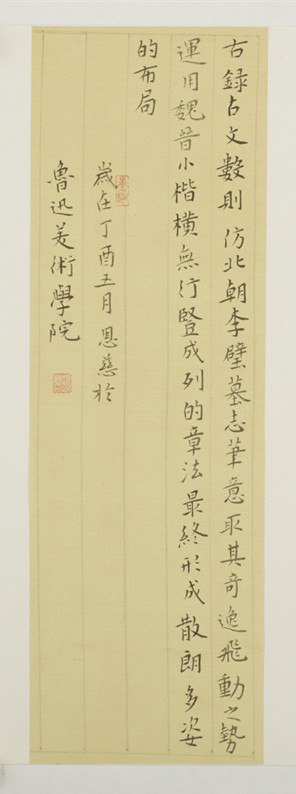 古録占文數則仿北朝李璧墓志筆意取其奇逸飛動之勢
運用魏晉小楷橫無行豎成列的章法最終形成散朗多姿
的布局
歲在丁酉五月恩慈於
魯迅美術學院